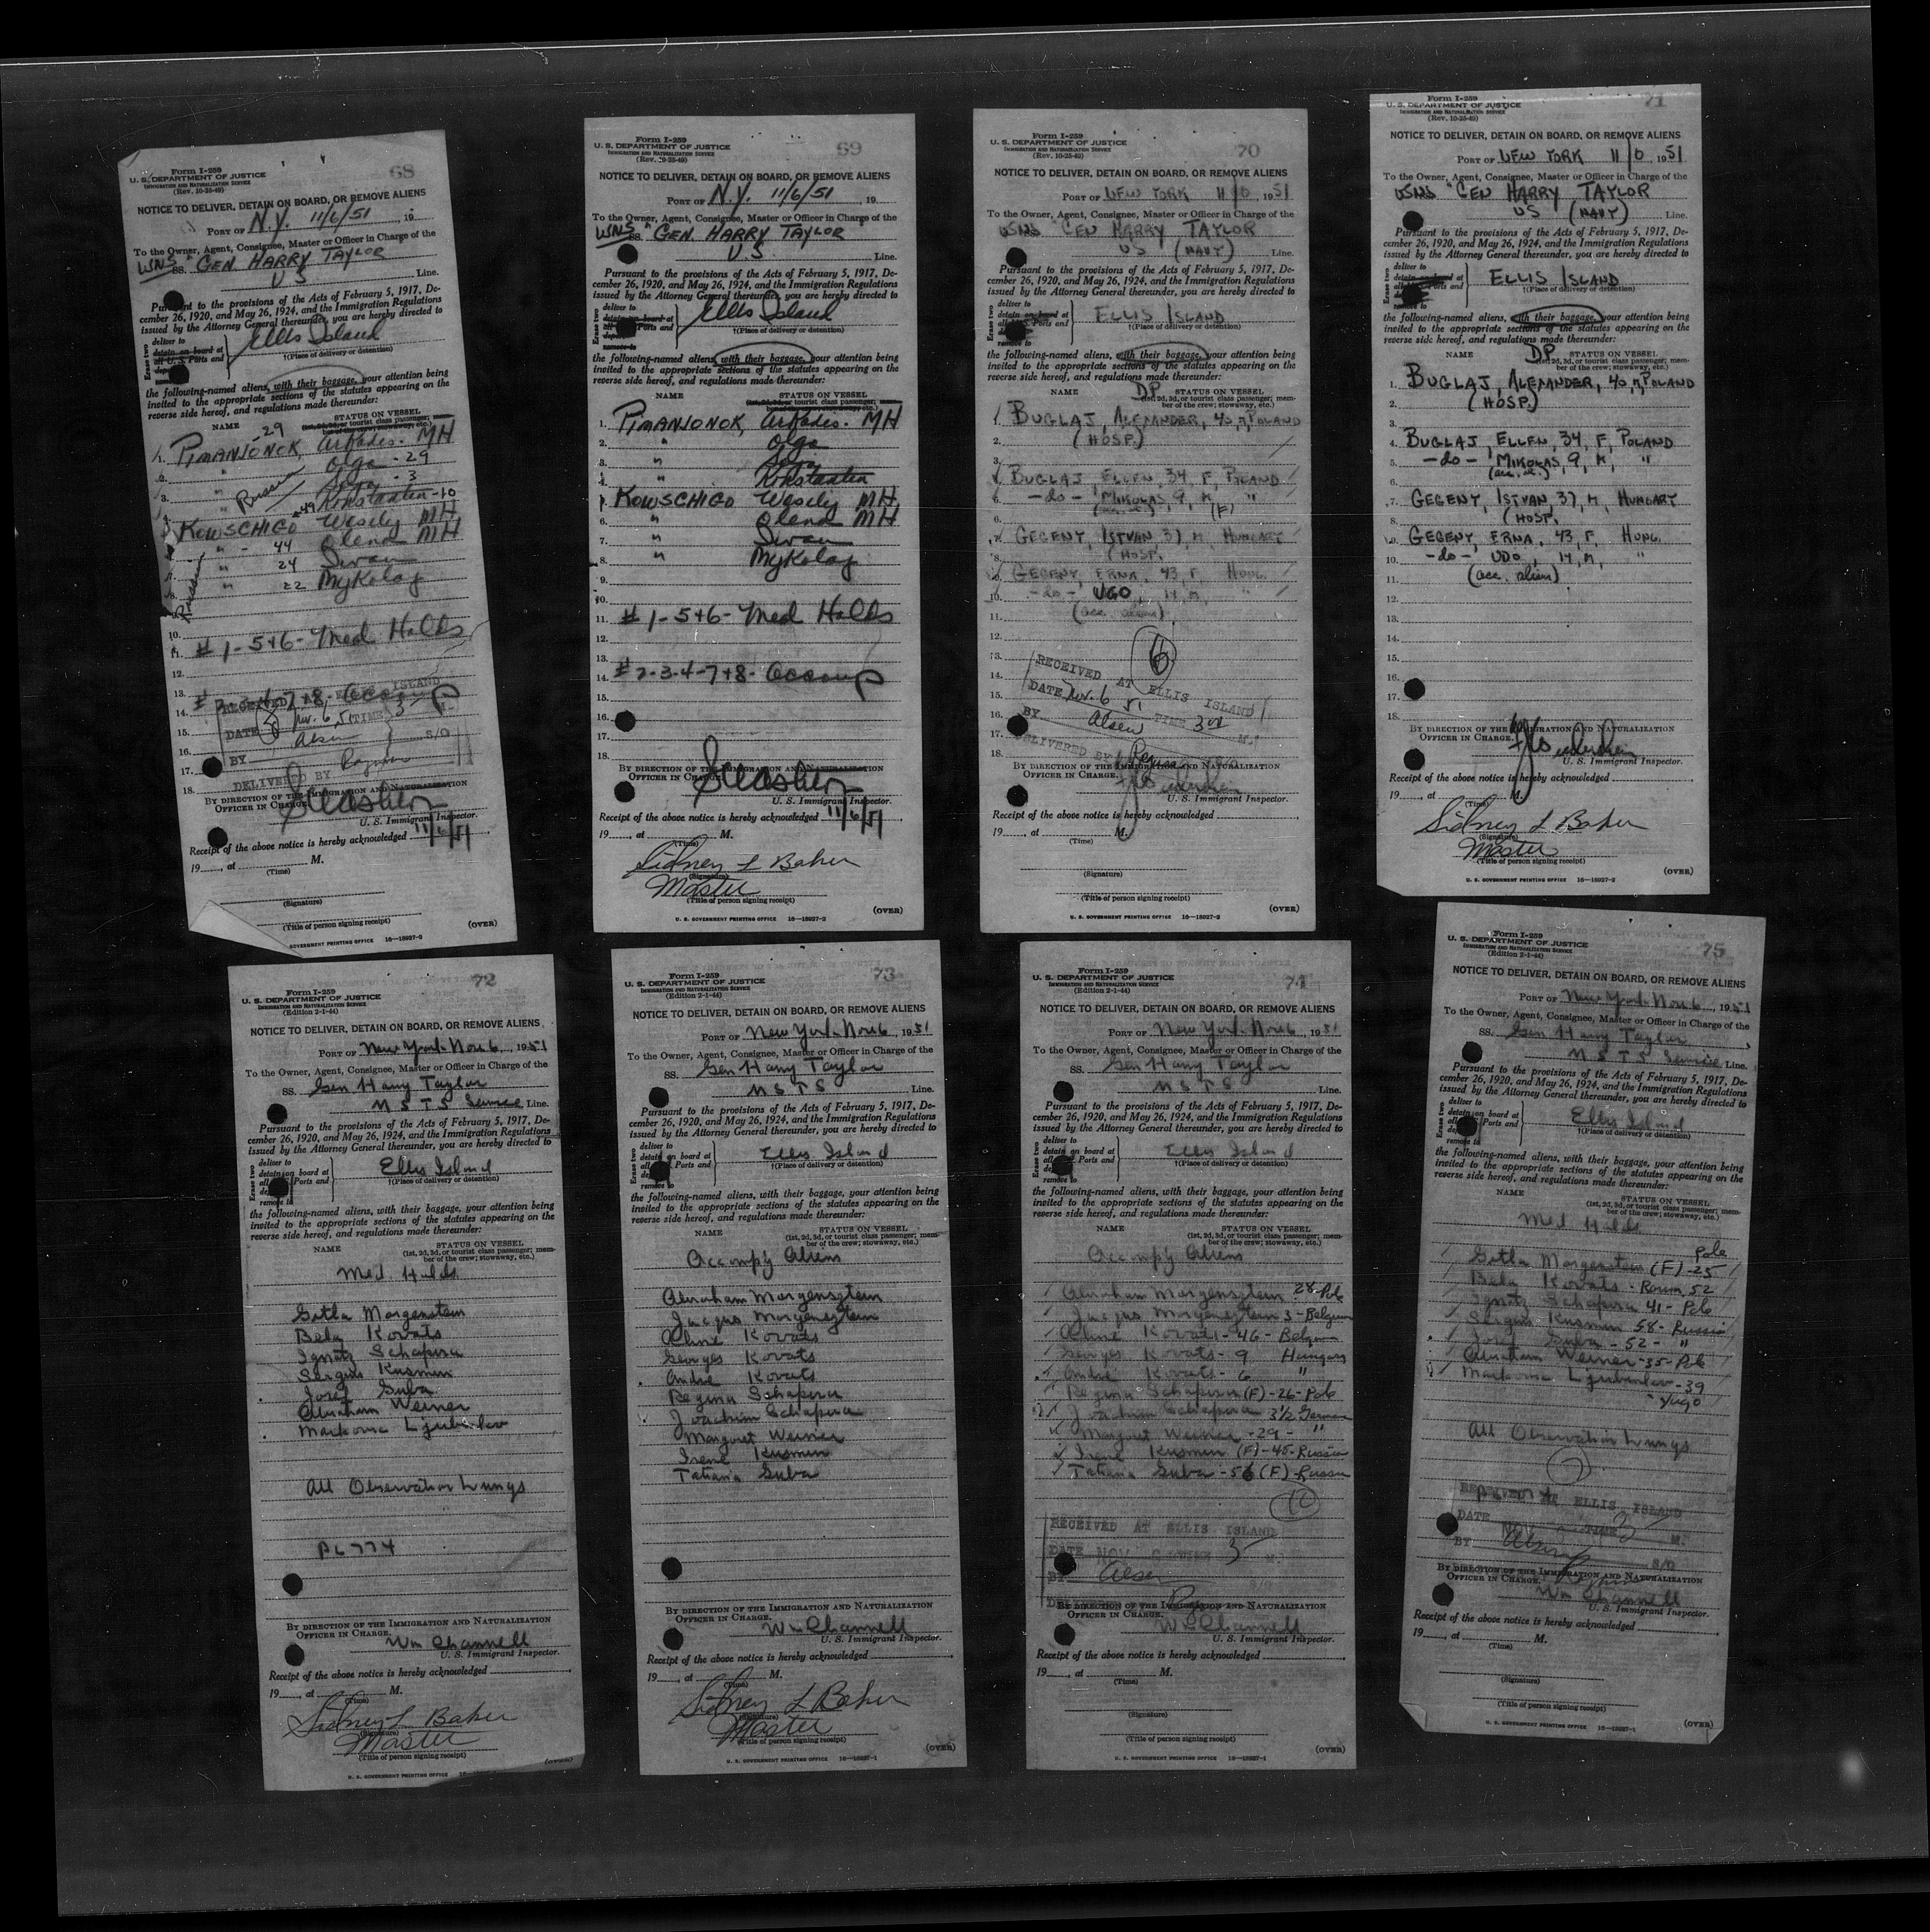 68
Form I-259
U. S. DEPARTMENT OF JUSTICE
IMMIGRATION AND NATURALIZATION SERVICE
(Rev. 10-25-49)
NOTICE TO DELIVER, DETAIN ON BOARD, OR REMOVE ALIENS
PORT OF N.Y. 11/6/51, 19
To the Owner, Agent, Consignee, Master or Officer in Charge of the
USNS SS. "GEN. HARRY TAYLOR
US Line.
Pursuant to the provisions of the Acts of February 5, 1917, De-
cember 26, 1920, and May 26, 1924, and the Immigration Regulations
issued by the Attorney General thereunder, you are hereby directed to
Erase two
deliver to
detain on board at
all U.S. Ports and
Ellis Island
†(Place of delivery or detention)
remove to
the following-named aliens, with their baggage, your attention being
invited to the appropriate sections of the statutes appearing on the
reverse side hereof, and regulations made thereunder:
NAME STATUS ON VESSEL
(1st, 2d, 3d, or tourist class passenger; mem-
ber of the crew; stowaway, etc.)
1. PIMANJONOK, -29 Arkades. MH
2. " Olga - 29
3. " - 3
Russian
" Konstantin - 10
KOWSCHIGO -49 Wesely MH
" - 44 Olena MH
" 24 Iwan
" 22 Mykolaj
Russian
10.
11. # 1-5+6- Med Holds
12.
13. # 2-3-4-7+8- Accomp
14. RECEIVED AT ELLIS ISLAND
15. DATE Nov. 6 51 TIME 3 M.
16. BY Alsen S/O
17. DELIVERED BY
18.
BY DIRECTION OF THE IMMIGRATION AND NATURALIZATION
OFFICER IN CHARGE.
U. S. Immigrant Inspector.
Receipt of the above notice is hereby acknowledged 11/6/51
19____, at ________ M.
(Time)
(Signature)
(Title of person signing receipt)
GOVERNMENT PRINTING OFFICE 16—18927-2 (OVER)
69
Form I-259
U. S. DEPARTMENT OF JUSTICE
IMMIGRATION AND NATURALIZATION SERVICE
(Rev. 10-25-49)
NOTICE TO DELIVER, DETAIN ON BOARD, OR REMOVE ALIENS
PORT OF N.Y. 11/6/51, 19
To the Owner, Agent, Consignee, Master or Officer in Charge of the
USNS SS. "GEN. HARRY TAYLOR
U.S. Line.
Pursuant to the provisions of the Acts of February 5, 1917, De-
cember 26, 1920, and May 26, 1924, and the Immigration Regulations
issued by the Attorney General thereunder, you are hereby directed to
Erase two
deliver to
detain on board at
all Ports and
Ellis Island
†(Place of delivery or detention)
remove to
the following-named aliens, with their baggage, your attention being
invited to the appropriate sections of the statutes appearing on the
reverse side hereof, and regulations made thereunder:
NAME STATUS ON VESSEL
(1st, 2d, 3d, or tourist class passenger; mem-
ber of the crew; stowaway, etc.)
1. PIMANJONOK, Arkades. MH
2. " Olga
3. "
4. " Konstantin
KOWSCHIGO Wesely MH
6. " Olena MH
7. " Iwan
8. " Mykolaj
9.
10.
11. # 1-5+6- Med Holds
12.
13.
14. # 2-3-4-7+8- Accomp
15.
16.
17.
18.
BY DIRECTION OF THE IMMIGRATION AND NATURALIZATION
OFFICER IN CHARGE.
U. S. Immigrant Inspector.
Receipt of the above notice is hereby acknowledged 11/6/51
19____, at ________ M.
(Time)
Sidney L Baker
(Signature)
Master
(Title of person signing receipt)
U. S. GOVERNMENT PRINTING OFFICE 16—18927-2 (OVER)
70
Form I-259
U. S. DEPARTMENT OF JUSTICE
IMMIGRATION AND NATURALIZATION SERVICE
(Rev. 10-25-49)
NOTICE TO DELIVER, DETAIN ON BOARD, OR REMOVE ALIENS
PORT OF NEW YORK 11/6, 1951
To the Owner, Agent, Consignee, Master or Officer in Charge of the
USNS "GEN HARRY TAYLOR
US (NAVY) Line.
Pursuant to the provisions of the Acts of February 5, 1917, De-
cember 26, 1920, and May 26, 1924, and the Immigration Regulations
issued by the Attorney General thereunder, you are hereby directed to
Erase two
deliver to
detain on board at
all Ports and
ELLIS ISLAND
†(Place of delivery or detention)
remove to
the following-named aliens, with their baggage, your attention being
invited to the appropriate sections of the statutes appearing on the
reverse side hereof, and regulations made thereunder:
NAME DP STATUS ON VESSEL
(1st, 2d, 3d, or tourist class passenger; mem-
ber of the crew; stowaway, etc.)
1. BUGLAJ, ALEXANDER, 40, M, POLAND
2. (HOSP.)
3.
BUGLAJ, ELLEN, 34, F, POLAND
-do- MIKOLAS, 9, M "
6. (acc. al.) (F)
GEGENY, ISTVAN, 37, M, HUNGARY
8. (HOSP.
GEGENY, ERNA, 43, F, HUNG.
10. -do- UGO, 14, M, "
11. (acc. aliens)
12.
13. 6
14. RECEIVED AT ELLIS ISLAND
15. DATE Nov. 6 51
16. BY Alsen TIME 3 M.
17. DELIVERED BY
18.
BY DIRECTION OF THE IMMIGRATION AND NATURALIZATION
OFFICER IN CHARGE.
U. S. Immigrant Inspector.
Receipt of the above notice is hereby acknowledged
19____, at ________ M.
(Time)
(Signature)
(Title of person signing receipt)
U. S. GOVERNMENT PRINTING OFFICE 16—18927-2 (OVER)
71
Form I-259
U. S. DEPARTMENT OF JUSTICE
IMMIGRATION AND NATURALIZATION SERVICE
(Rev. 10-25-49)
NOTICE TO DELIVER, DETAIN ON BOARD, OR REMOVE ALIENS
PORT OF NEW YORK 11/6, 1951
To the Owner, Agent, Consignee, Master or Officer in Charge of the
USNS "GEN HARRY TAYLOR
US (NAVY) Line.
Pursuant to the provisions of the Acts of February 5, 1917, De-
cember 26, 1920, and May 26, 1924, and the Immigration Regulations
issued by the Attorney General thereunder, you are hereby directed to
Erase two
deliver to
detain on board at
all Ports and
ELLIS ISLAND
†(Place of delivery or detention)
remove to
the following-named aliens, with their baggage, your attention being
invited to the appropriate sections of the statutes appearing on the
reverse side hereof, and regulations made thereunder:
NAME DP STATUS ON VESSEL
(1st, 2d, 3d, or tourist class passenger; mem-
ber of the crew; stowaway, etc.)
1. BUGLAJ, ALEXANDER, 40, M, POLAND
2. (HOSP.)
3.
4. BUGLAJ, ELLEN, 34, F, POLAND
5. -do- MIKOLAS, 9, M, "
6. (acc. al.)
7. GEGENY, ISTVAN, 37, M, HUNGARY
8. (HOSP.
9. GEGENY, ERNA, 43, F, HUNG.
10. -do- UDO, 14, M, "
11. (acc. aliens)
12.
13.
14.
15.
16.
17.
18.
BY DIRECTION OF THE IMMIGRATION AND NATURALIZATION
OFFICER IN CHARGE.
U. S. Immigrant Inspector.
Receipt of the above notice is hereby acknowledged
19____, at ________ M.
(Time)
Sidney L Baker
(Signature)
Master
(Title of person signing receipt)
U. S. GOVERNMENT PRINTING OFFICE 16—18927-2 (OVER)
72
Form I-259
U. S. DEPARTMENT OF JUSTICE
IMMIGRATION AND NATURALIZATION SERVICE
(Edition 2-1-44)
NOTICE TO DELIVER, DETAIN ON BOARD, OR REMOVE ALIENS
PORT OF New York - Nov 6, 1951
To the Owner, Agent, Consignee, Master or Officer in Charge of the
SS. Gen Harry Taylor
M S T S Service Line.
Pursuant to the provisions of the Acts of February 5, 1917, De-
cember 26, 1920, and May 26, 1924, and the Immigration Regulations
issued by the Attorney General thereunder, you are hereby directed to
Erase two
deliver to
detain on board at
all Ports and
Ellis Island
†(Place of delivery or detention)
remove to
the following-named aliens, with their baggage, your attention being
invited to the appropriate sections of the statutes appearing on the
reverse side hereof, and regulations made thereunder:
NAME STATUS ON VESSEL
(1st, 2d, 3d, or tourist class passenger; mem-
ber of the crew; stowaway, etc.)
Med. Holds
Gitla Morgenstein
Bela Kovats
Ignatz Schapira
Sergius Kusmin
Josef Guba
Abraham Weiner
Markovic Ljubislav
All Observation Lungs
PL 774
BY DIRECTION OF THE IMMIGRATION AND NATURALIZATION
OFFICER IN CHARGE.
Wm Channell
U. S. Immigrant Inspector.
Receipt of the above notice is hereby acknowledged
19____, at ________ M.
(Time)
Sidney L Baker
(Signature)
Master
(Title of person signing receipt)
U. S. GOVERNMENT PRINTING OFFICE 16—18927-1 (OVER)
73
Form I-259
U. S. DEPARTMENT OF JUSTICE
IMMIGRATION AND NATURALIZATION SERVICE
(Edition 2-1-44)
NOTICE TO DELIVER, DETAIN ON BOARD, OR REMOVE ALIENS
PORT OF New York - Nov 6, 1951
To the Owner, Agent, Consignee, Master or Officer in Charge of the
SS. Gen Harry Taylor
M S T S Line.
Pursuant to the provisions of the Acts of February 5, 1917, De-
cember 26, 1920, and May 26, 1924, and the Immigration Regulations
issued by the Attorney General thereunder, you are hereby directed to
Erase two
deliver to
detain on board at
all Ports and
Ellis Island
†(Place of delivery or detention)
remove to
the following-named aliens, with their baggage, your attention being
invited to the appropriate sections of the statutes appearing on the
reverse side hereof, and regulations made thereunder:
NAME STATUS ON VESSEL
(1st, 2d, 3d, or tourist class passenger; mem-
ber of the crew; stowaway, etc.)
Accompy Aliens
Abraham Morgensztein
Jacques Morgensztein
Aline Kovats
Georges Kovats
Andre Kovats
Regina Schapira
Joachim Schapira
Margaret Weiner
Irene Kusmin
Tatiana Guba
BY DIRECTION OF THE IMMIGRATION AND NATURALIZATION
OFFICER IN CHARGE.
Wm Channell
U. S. Immigrant Inspector.
Receipt of the above notice is hereby acknowledged
19____, at ________ M.
(Time)
Sidney L Baker
(Signature)
Master
(Title of person signing receipt)
U. S. GOVERNMENT PRINTING OFFICE 16—18927-1 (OVER)
74
Form I-259
U. S. DEPARTMENT OF JUSTICE
IMMIGRATION AND NATURALIZATION SERVICE
(Edition 2-1-44)
NOTICE TO DELIVER, DETAIN ON BOARD, OR REMOVE ALIENS
PORT OF New York - Nov 6, 1951
To the Owner, Agent, Consignee, Master or Officer in Charge of the
SS. Gen Harry Taylor
M S T S Line.
Pursuant to the provisions of the Acts of February 5, 1917, De-
cember 26, 1920, and May 26, 1924, and the Immigration Regulations
issued by the Attorney General thereunder, you are hereby directed to
Erase two
deliver to
detain on board at
all Ports and
Ellis Island
†(Place of delivery or detention)
remove to
the following-named aliens, with their baggage, your attention being
invited to the appropriate sections of the statutes appearing on the
reverse side hereof, and regulations made thereunder:
NAME STATUS ON VESSEL
(1st, 2d, 3d, or tourist class passenger; mem-
ber of the crew; stowaway, etc.)
Accompy Aliens
Abraham Morgensztein 28-Pole
Jacques Morgensztein 3 - Belgium
Aline Kovats - 46 - Belgium
Georges Kovats - 9 Hungary
Andre Kovats - 6 "
Regina Schapira (F) - 26 - Pole
Joachim Schapira 3 1/2 German
Margaret Weiner - 29 - "
Irene Kusmin (F) - 48 - Russia
Tatiana Guba - 56 (F) - Russia
10
RECEIVED AT ELLIS ISLAND
DATE NOV 6 TIME 3 M.
BY Alsen S/O
BY DIRECTION OF THE IMMIGRATION AND NATURALIZATION
OFFICER IN CHARGE.
Wm Channell
U. S. Immigrant Inspector.
Receipt of the above notice is hereby acknowledged
19____, at ________ M.
(Time)
(Signature)
(Title of person signing receipt)
U. S. GOVERNMENT PRINTING OFFICE 16—18927-1 (OVER)
75
Form I-259
U. S. DEPARTMENT OF JUSTICE
IMMIGRATION AND NATURALIZATION SERVICE
(Edition 2-1-44)
NOTICE TO DELIVER, DETAIN ON BOARD, OR REMOVE ALIENS
PORT OF New York - Nov 6, 1951
To the Owner, Agent, Consignee, Master or Officer in Charge of the
SS. Gen Harry Taylor
M S T S Service Line.
Pursuant to the provisions of the Acts of February 5, 1917, De-
cember 26, 1920, and May 26, 1924, and the Immigration Regulations
issued by the Attorney General thereunder, you are hereby directed to
Erase two
deliver to
detain on board at
all Ports and
Ellis Island
†(Place of delivery or detention)
remove to
the following-named aliens, with their baggage, your attention being
invited to the appropriate sections of the statutes appearing on the
reverse side hereof, and regulations made thereunder:
NAME STATUS ON VESSEL
(1st, 2d, 3d, or tourist class passenger; mem-
ber of the crew; stowaway, etc.)
Med Holds
Gitla Morgenstein (F) - 25 Pole
Bela Kovats - Roum. 52
Ignatz Schapira 41 - Pole
Sergius Kusmin 58 - Russia
Josef Guba - 52 - "
Abraham Weiner - 35 - Pole
Markovic Ljubislav - 39
Yugo
All Observation Lungs
7
PL 774
RECEIVED AT ELLIS ISLAND
DATE NOV TIME 3 M.
BY Alsen S/O
BY DIRECTION OF THE IMMIGRATION AND NATURALIZATION
OFFICER IN CHARGE.
Wm Channell
U. S. Immigrant Inspector.
Receipt of the above notice is hereby acknowledged
19____, at ________ M.
(Time)
(Signature)
(Title of person signing receipt)
U. S. GOVERNMENT PRINTING OFFICE 16—18927-1 (OVER)